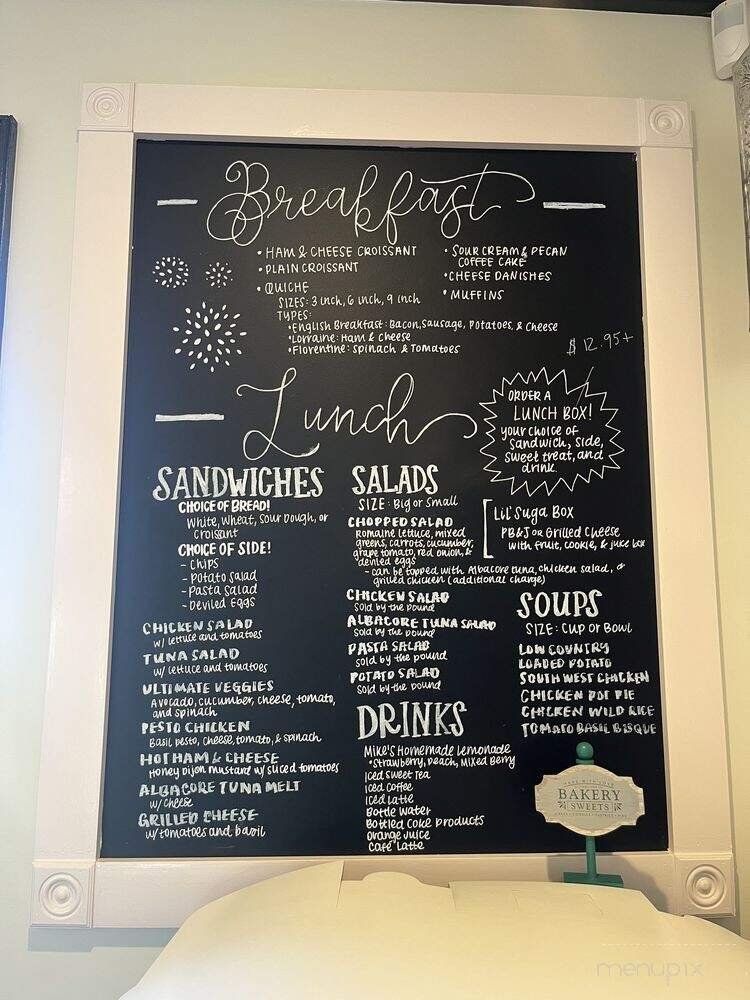 Breakfast
• HAM & CHEESE CROISSANT
• PLAIN CROISSANT
• QUICHE
SIZES: 3 inch, 6 inch, 9 inch
TYPES:
• English Breakfast: Bacon, Sausage, Potatoes, & Cheese
• Lorraine: Ham & Cheese
• Florentine: Spinach & Tomatoes
• SOUR CREAM & PECAN
COFFEE CAKE
• CHEESE DANISHES
• MUFFINS
$12.95+
Lunch
ORDER A
LUNCH BOX!
your choice of
sandwich, side,
sweet treat, and
drink.
SANDWICHES
CHOICE OF BREAD!
White, Wheat, Sour Dough, or
Croissant
CHOICE OF SIDE!
- Chips
- Potato Salad
- Pasta Salad
- Deviled Eggs
CHICKEN SALAD
w/ lettuce and tomatoes
TUNA SALAD
w/ lettuce and tomatoes
ULTIMATE VEGGIES
Avocado, cucumber, cheese, tomato,
and spinach
PESTO CHICKEN
Basil pesto, cheese, tomato, & spinach
HOT HAM & CHEESE
Honey Dijon mustard w/ sliced tomatoes
ALBACORE TUNA MELT
w/ cheese
GRILLED CHEESE
w/ tomatoes and basil
SALADS
SIZE: Big or Small
CHOPPED SALAD
Romaine lettuce, mixed
greens, carrots, cucumber,
grape tomato, red onion, &
deviled eggs
- can be topped with Albacore tuna, chicken salad, or
grilled chicken (additional charge)
CHICKEN SALAD
sold by the pound
ALBACORE TUNA SALAD
sold by the pound
PASTA SALAD
sold by the pound
POTATO SALAD
sold by the pound
Lil' Suga Box
PB&J or Grilled Cheese
with fruit, cookie, & juice box
SOUPS
SIZE: Cup or Bowl
LOW COUNTRY
LOADED POTATO
SOUTHWEST CHICKEN
CHICKEN POT PIE
CHICKEN WILD RICE
TOMATO BASIL BISQUE
DRINKS
Mike's Homemade Lemonade
• Strawberry, Peach, Mixed Berry
Iced Sweet Tea
Iced Coffee
Iced Latte
Bottle Water
Bottled Coke Products
Orange Juice
Cafe Latte
MADE WITH LOVE
BAKERY
SWEETS
menupix